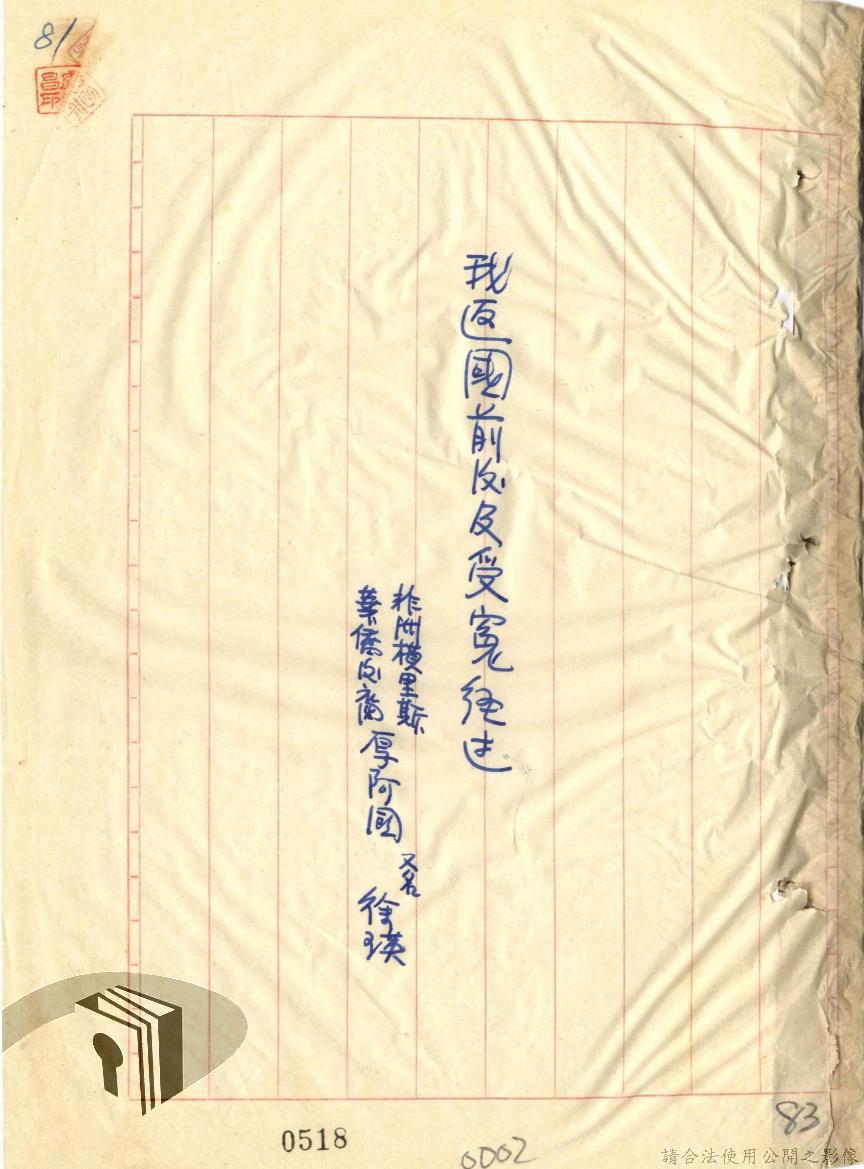 81
我返國前後及受冤經过
非洲模里斯
華僑後裔 厚阿國 又名 徐瑛
0518
0002
83
請合法使用公開之影像